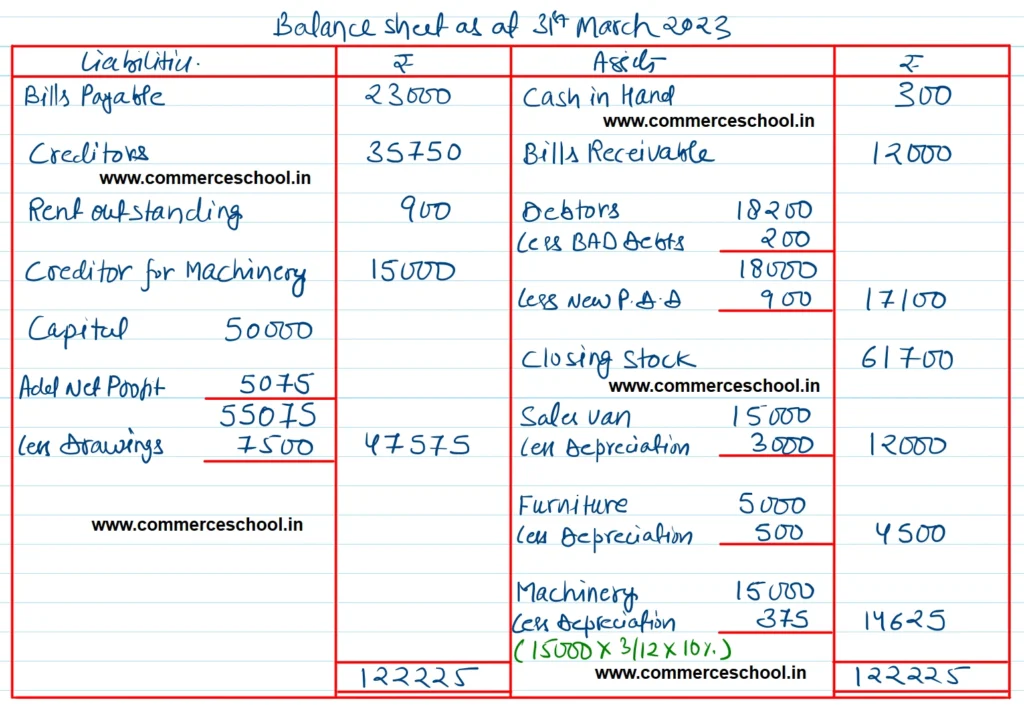 Balance sheet as at 31st March 2023
Liabilities. ₹ Assets ₹
Bills Payable 23000 Cash in Hand 300
www.commerceschool.in
Creditors 35750 Bills Receivable 12000
www.commerceschool.in
Rent outstanding 900 Debtors 18200
Less BAD Debts 200
Creditor for Machinery 15000 18000
Less New P.B.D 900 17100
Capital 50000
Closing Stock 61700
Add Net Profit 5075 www.commerceschool.in
55075 Sales van 15000
Less Drawings 7500 47575 Less Depreciation 3000 12000
Furniture 5000
www.commerceschool.in
Less Depreciation 500 4500
Machinery 15000
Less Depreciation 375 14625
(15000 X 3/12 X 10%)
122225 www.commerceschool.in 122225